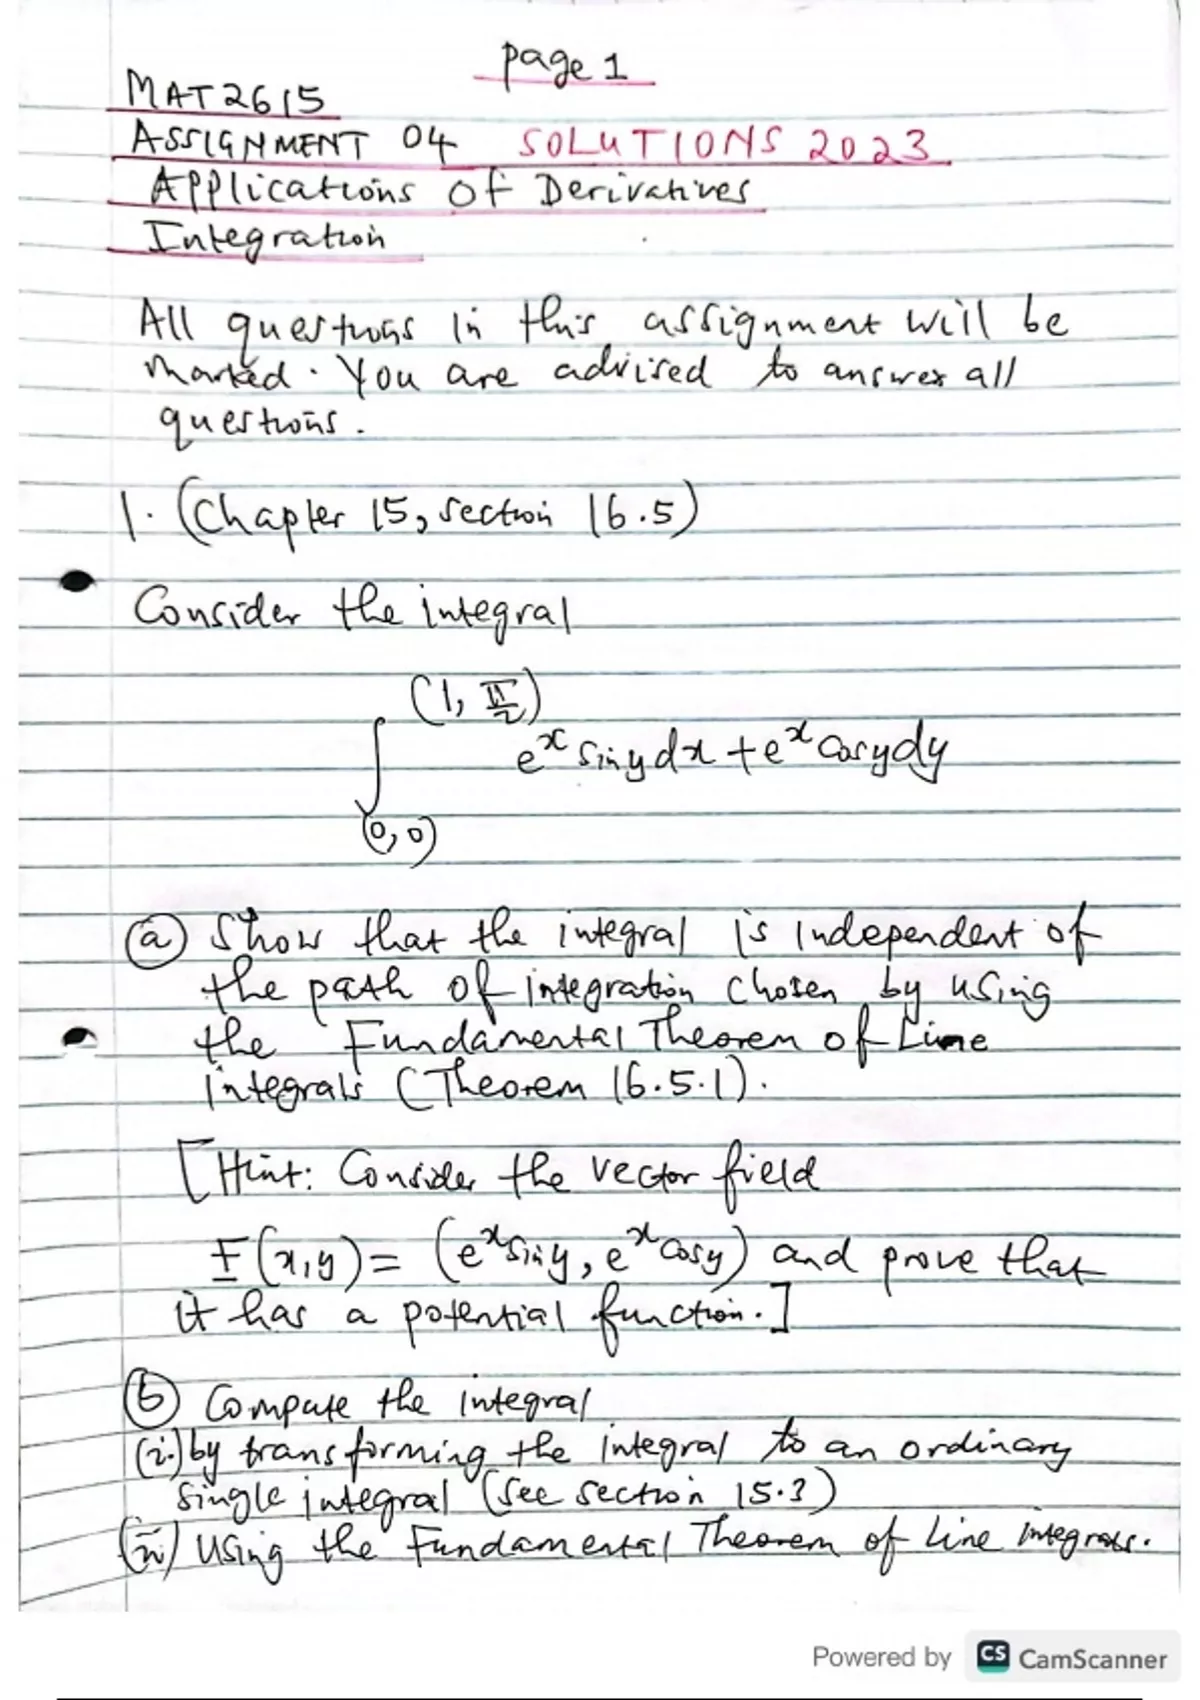 page 1
MAT2615
ASSIGNMENT 04 SOLUTIONS 2023
Applications of Derivatives
Integration
All questions in this assignment will be
marked. You are advised to answer all
questions.
1. (Chapter 15, section 16.5)
Consider the integral
(1, π/2)
∫ e^x sin y dx + e^x cos y dy
(0,0)
(a) Show that the integral is independent of
the path of integration chosen by using
the Fundamental Theorem of Line
integrals (Theorem 16.5.1).
[Hint: Consider the vector field
F(x,y) = (e^x sin y, e^x cos y) and prove that
it has a potential function.]
(b) Compute the integral
(i.) by transforming the integral to an ordinary
single integral (see section 15.3)
(ii) Using the Fundamental Theorem of Line integrals.
Powered by CS CamScanner